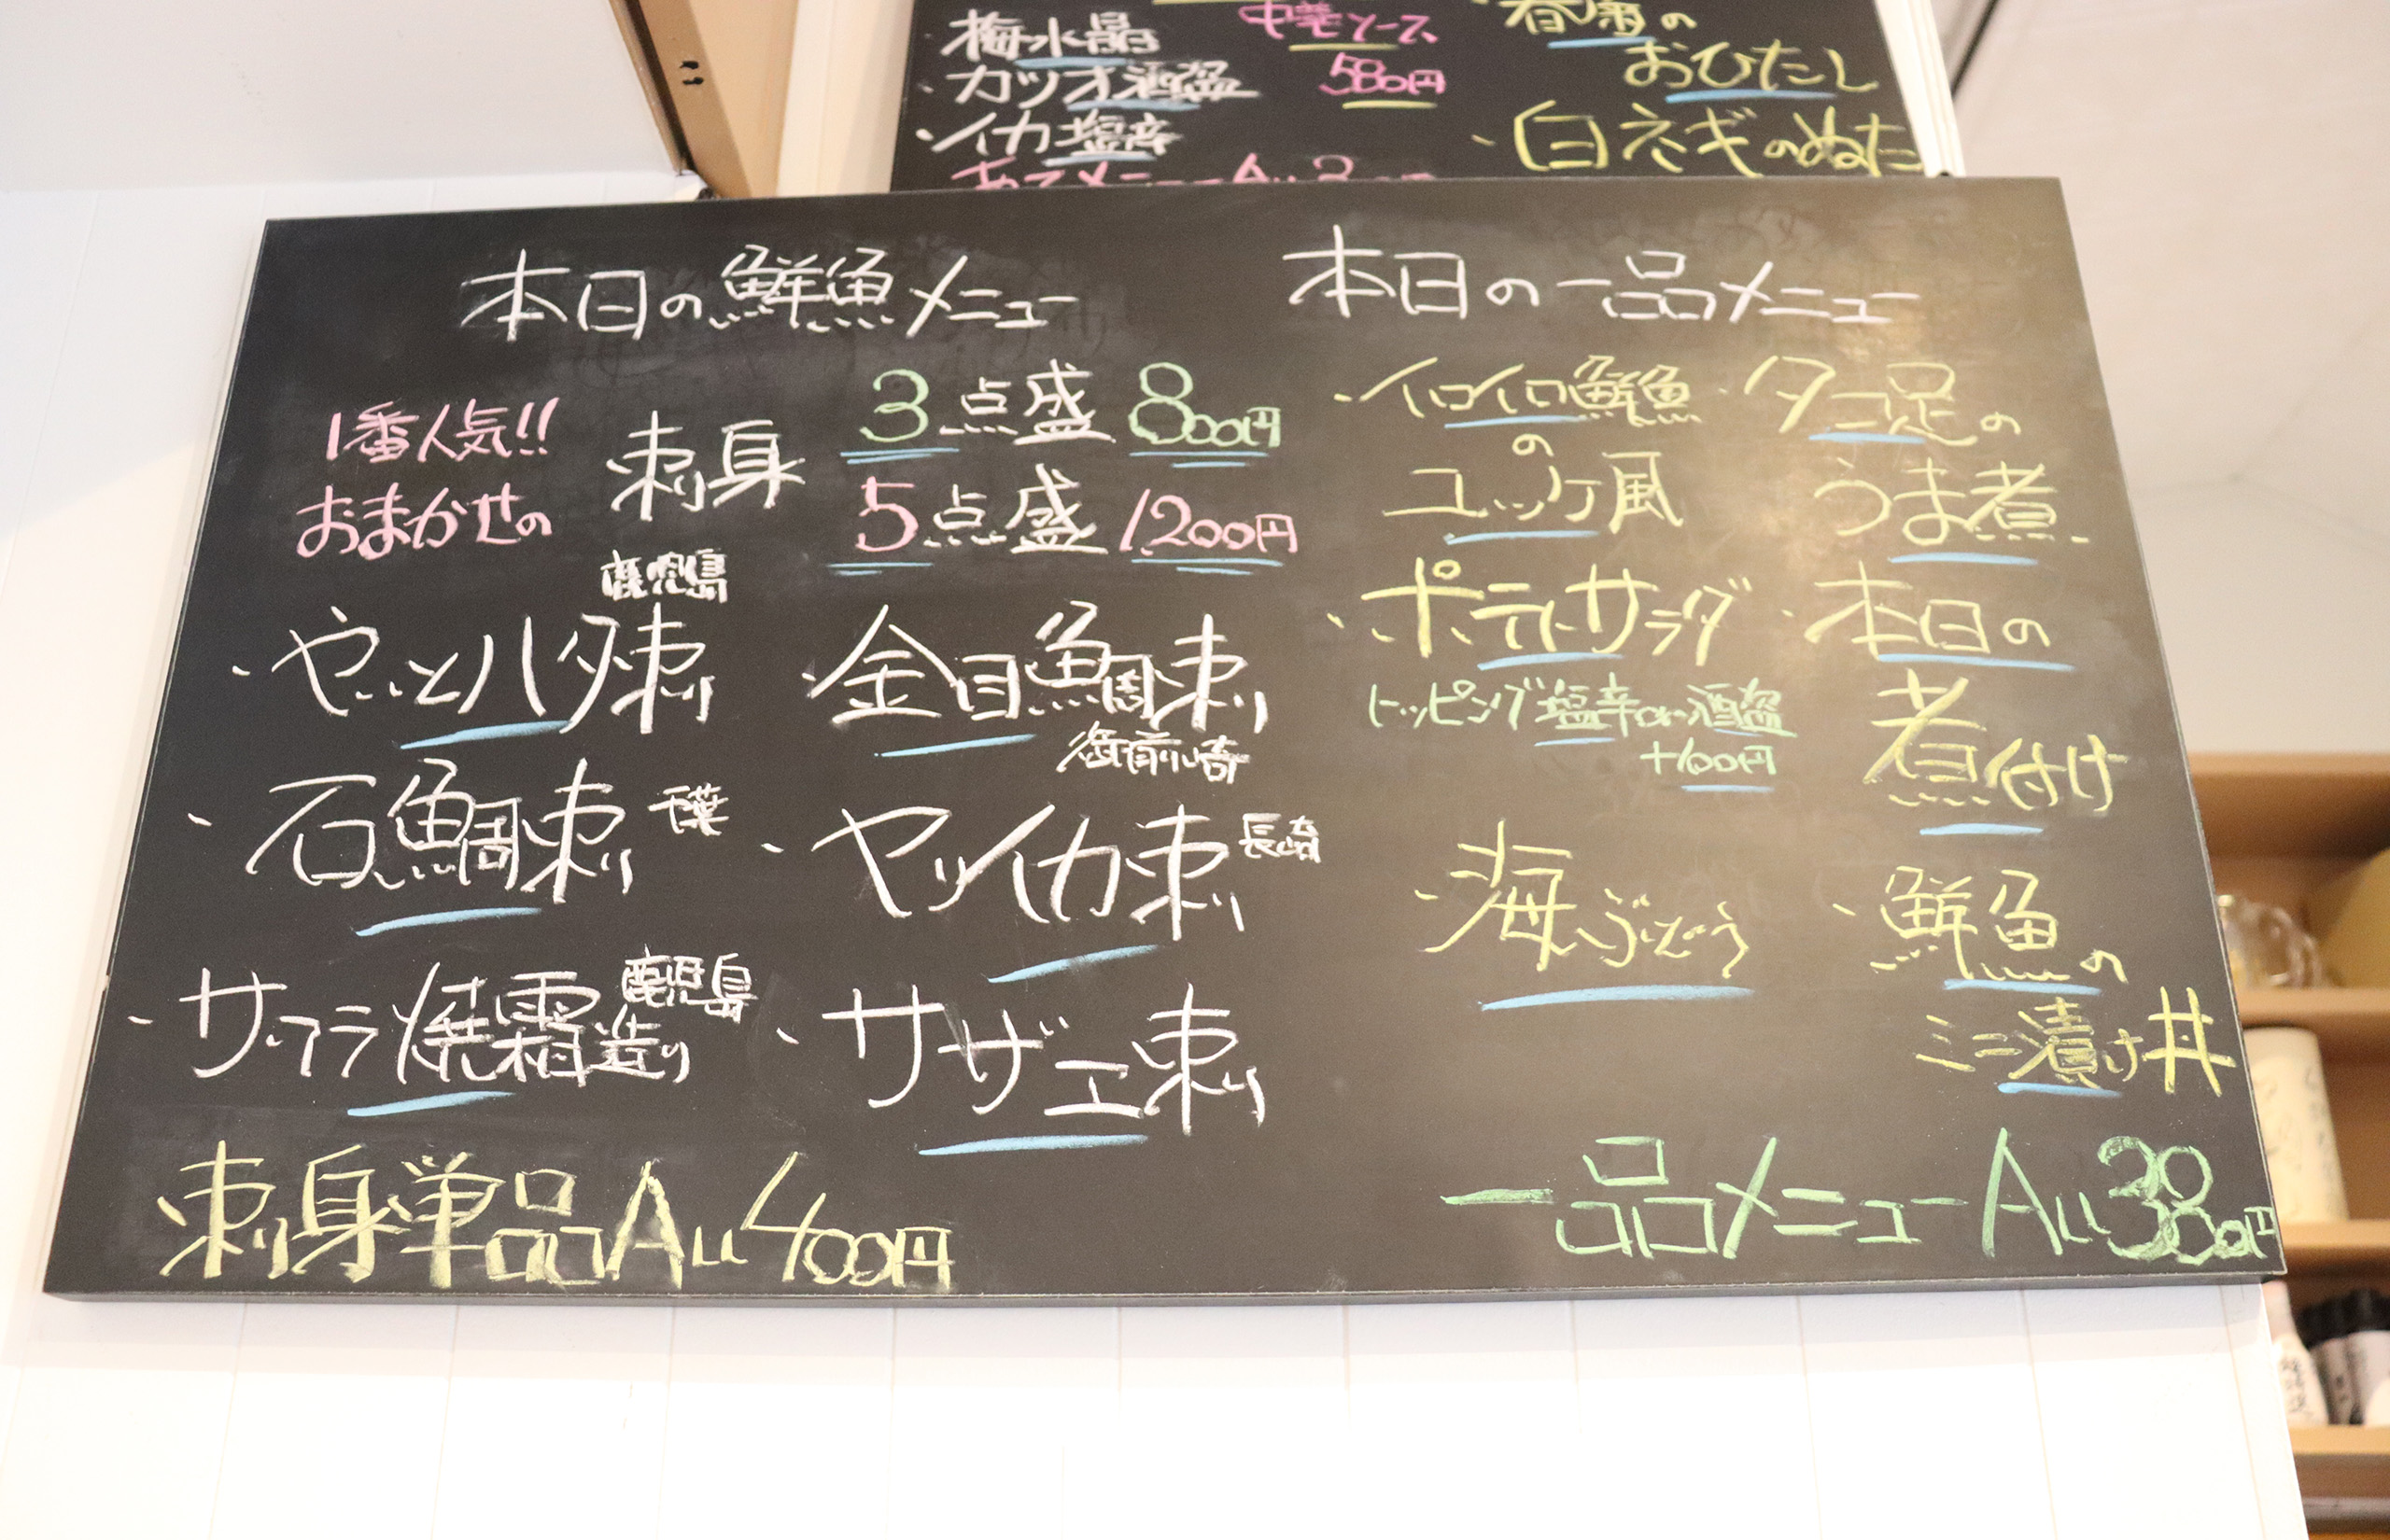 梅水晶
・カツオ酒盗
・イカ塩辛
中華ソース
580円
・春菊の
おひたし
・白ネギのぬた
あてメニューAll3
本日の鮮魚メニュー
1番人気!!
おまかせの
刺身
3点盛 800円
5点盛 1,200円
鹿児島
・やいとハタ刺
・金目鯛刺
御前崎
・石鯛刺 千葉
・ヤリイカ刺 長崎
・サワラ焼霜造り 鹿児島
・サザエ刺
刺身単品All400円
本日の一品メニュー
・イロイロ鮮魚
の
ユッケ風
・タコ足の
うま煮
・ポテトサラダ
トッピング塩辛or酒盗
+100円
・本日の
煮付け
・海ぶどう
・鮮魚の
ミニ漬け丼
一品メニューAll380円